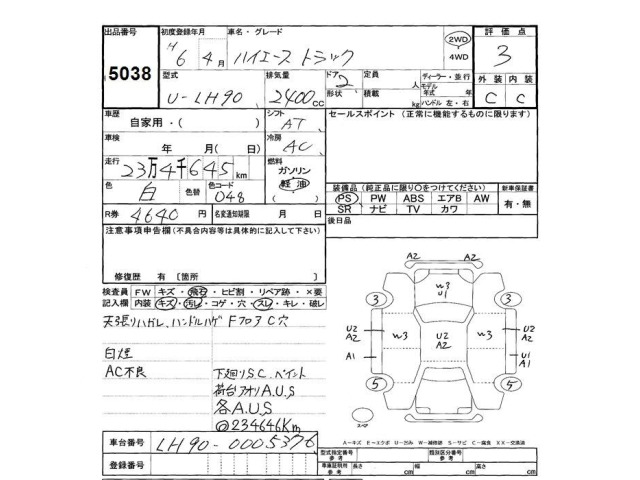 出品番号 初度登録年月 車名・グレード 2WD 評価点
H6年4月 ハイエーストラック 4WD 3
5038 型式 排気量 ドア2 定員 人 ディーラー・並行 外装 内装
形状 積載 kg モデル年式 年式 ハンドル 左・右
U-LH90 2400cc C C
車歴 自家用・( ) シフト AT セールスポイント (正常に機能するものに限ります)
車検 年 月( 日) 冷房 AC
走行 23万4千645km 燃料 ガソリン 軽油 ( )
色 白 色替 色コード 048 装備品(純正品に限り○をつけてください) 新車保証書
PS PW ABS エアB AW 有・無
R券 4640円 名変通知期限 月 日 SR ナビ TV カワ
注意事項申告欄(不具合内容等は具体的に記入して下さい) 後日品
修復歴 有 〔箇所 〕
検査員 FW キズ・飛石・ヒビ割・リペア跡・×要
記入欄 内装 キズ・汚レ・コゲ・穴・スレ・キレ・破レ
天張りハガレ、ハンドルハゲ FフロアC穴
白煙
AC不良 下廻りS.C.ペイント
荷台アオリA.U.S
各A.U.S
@234646Km
A2 A2
W3 U1
3 3
U2 A2 W3 U2 A2 W3 U2 A2
A1 U1 A1
5 5
スペア
A-キズ E-エクボ U-凹み W-補修跡 S-サビ C-腐食 XX-交換済
車台番号 LH90-0005376 型式指定番号 参考 類別区分番号 参考
登録番号 車庫証明用 参考 長さ cm 幅 cm 高さ cm